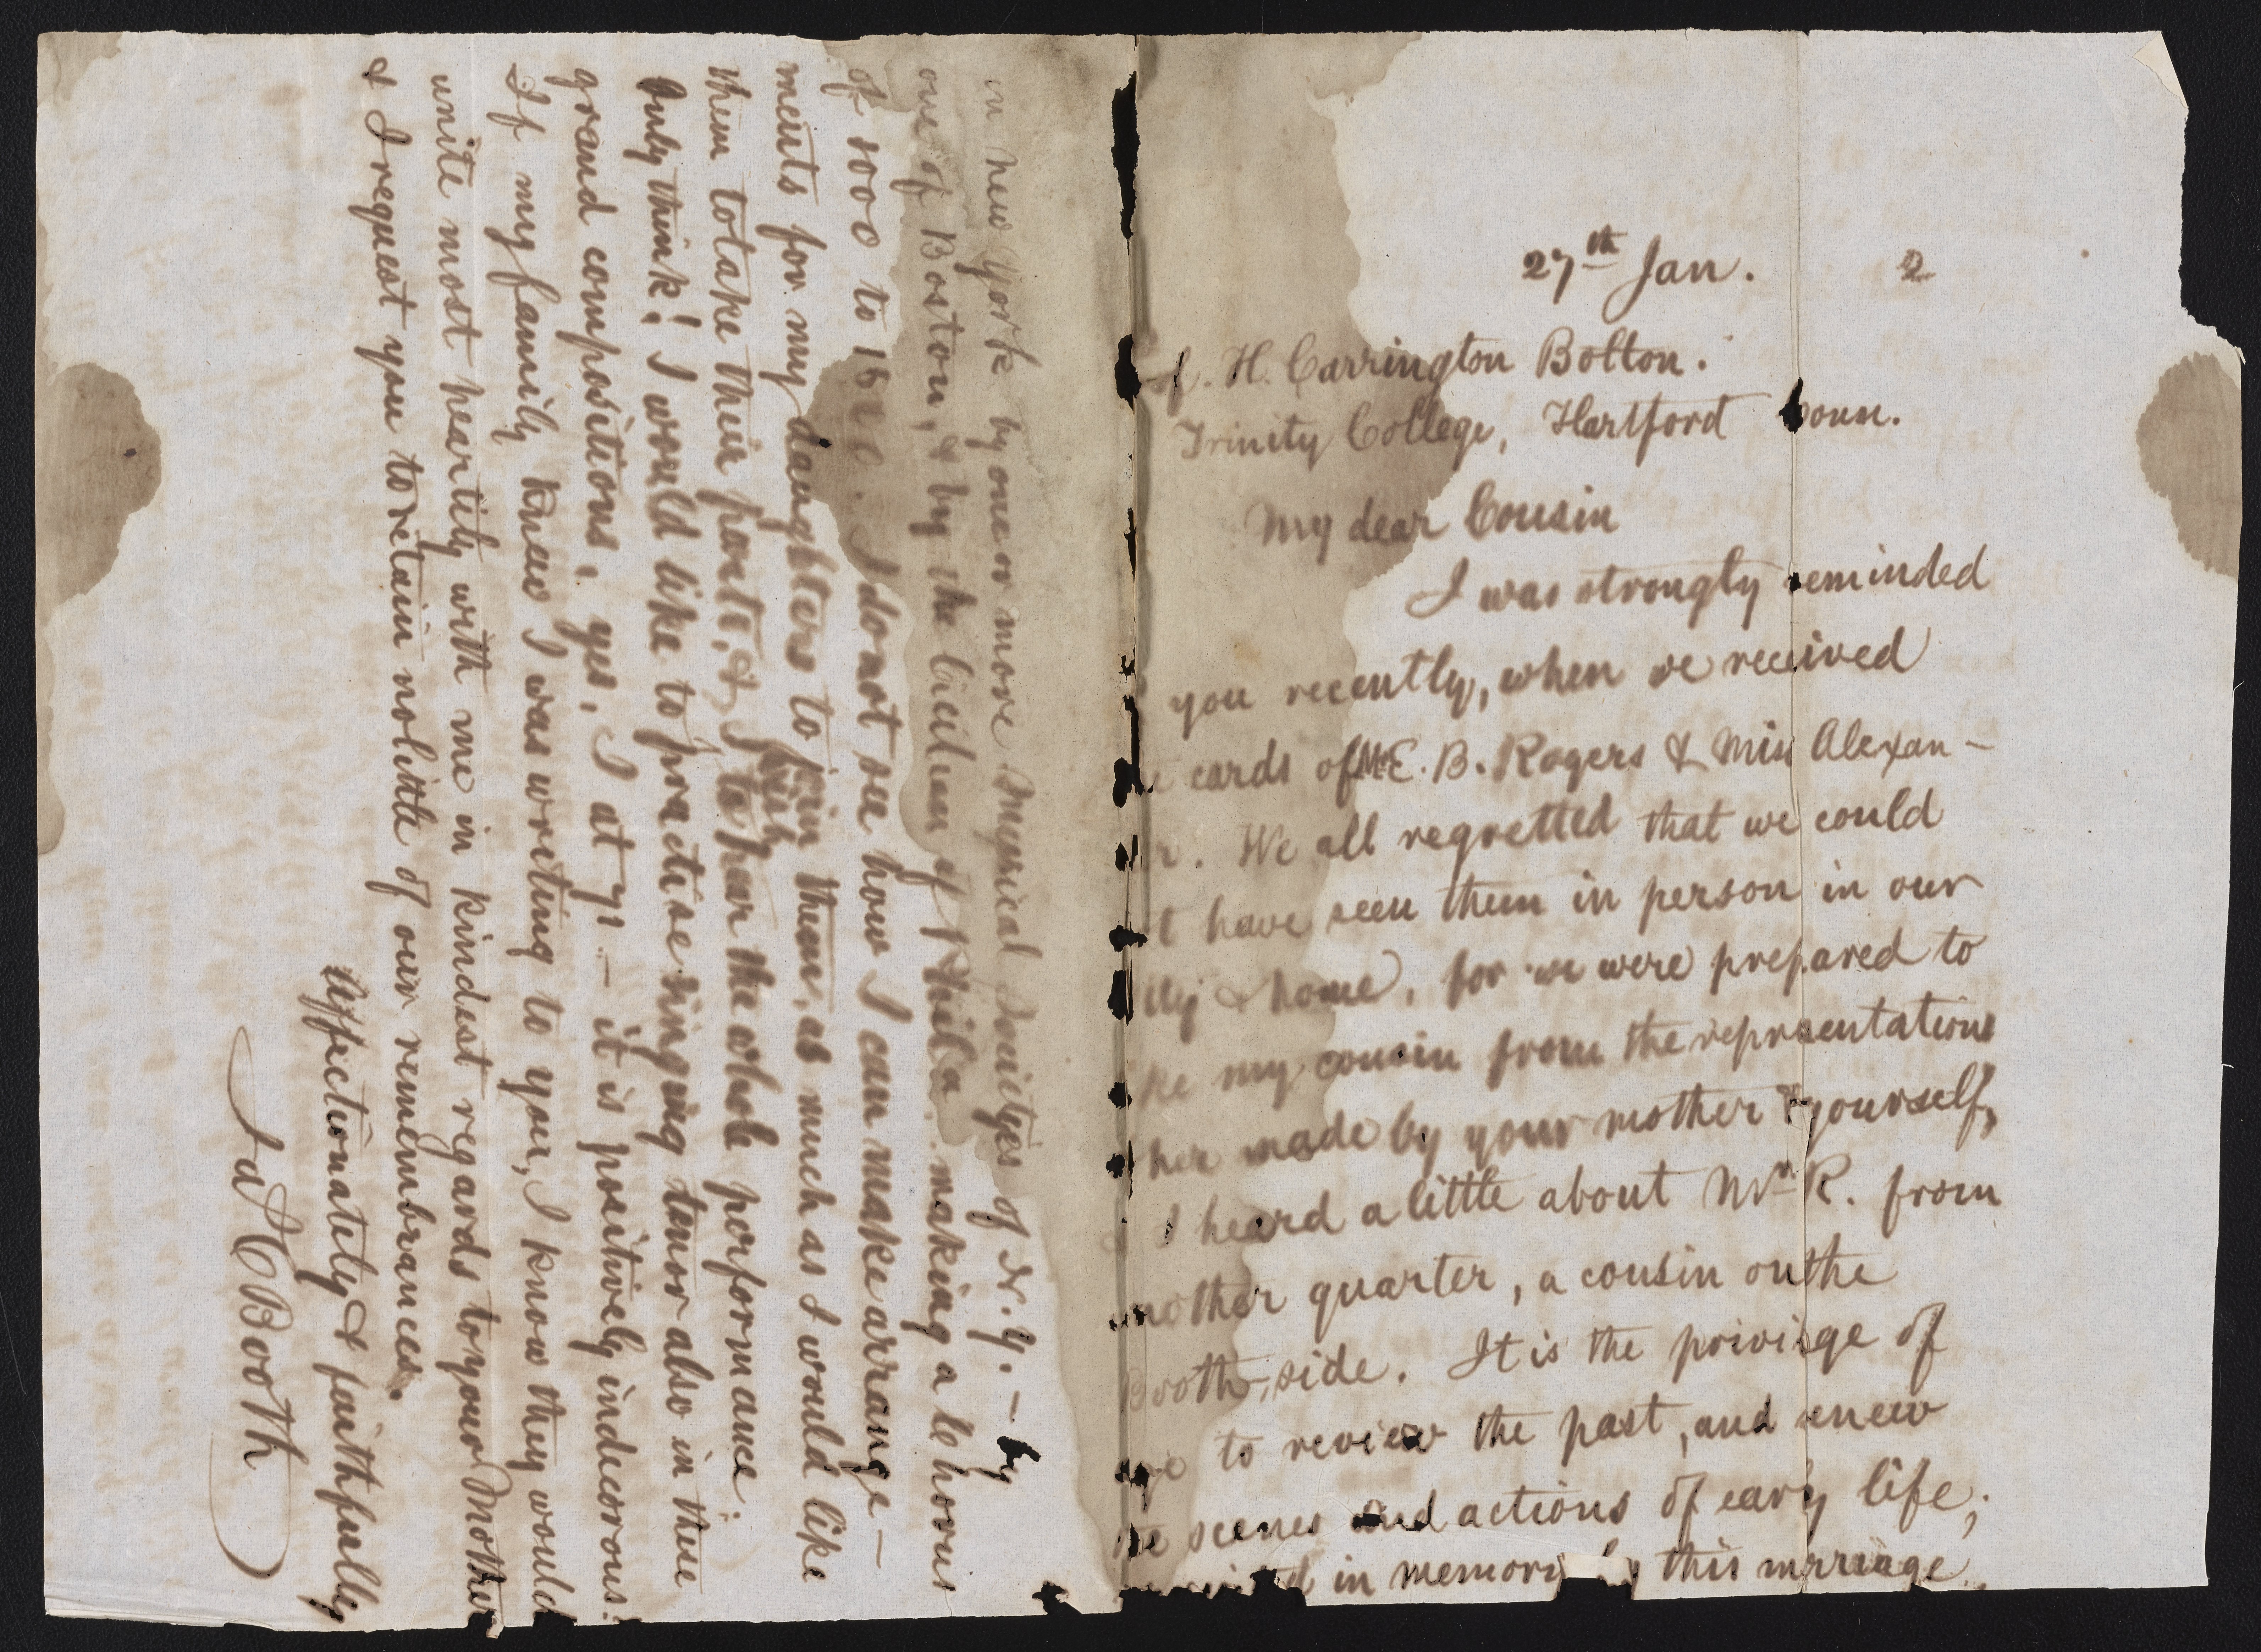 27th Jan. 2
H. Carrington Bolton.
Trinity College, Hartford Conn.
My dear Cousin
I was strongly reminded
you recently, when we received
cards of Mr E. B. Rogers & Miss Alexan-
r. We all regretted that we could
t have seen them in person in our
& home, for we were prepared to
ke my cousin from the represntations
her made by your mother & yourself,
I heard a little about Mr R. from
another quarter, a cousin on the
Booth side. It is the privilge of
age to review the past, and renew
he scenes and actions of early life;
in memory by this mrriage
in new York by one or more Musical Societyes of N. Y. - by
one of Boston, & by the Cicilian of Phila. making a chorus
of 1000 to 15 I do not see how I can make arrange-
ments for my daughters to join them, as much as I would like
them to take their parts, & I wish to hear the whole performance.
Only think! I would like to practise singing tenor also in these
grand compositions, yes, I at 71 - it is positively indecorous!
If my family knew I was writing to you, I know they would
unite most heartily with me in kindest regards to your Mother
& I request you to retain no little of our remembrances.
Affectionately & faithfully
Ja C Booth